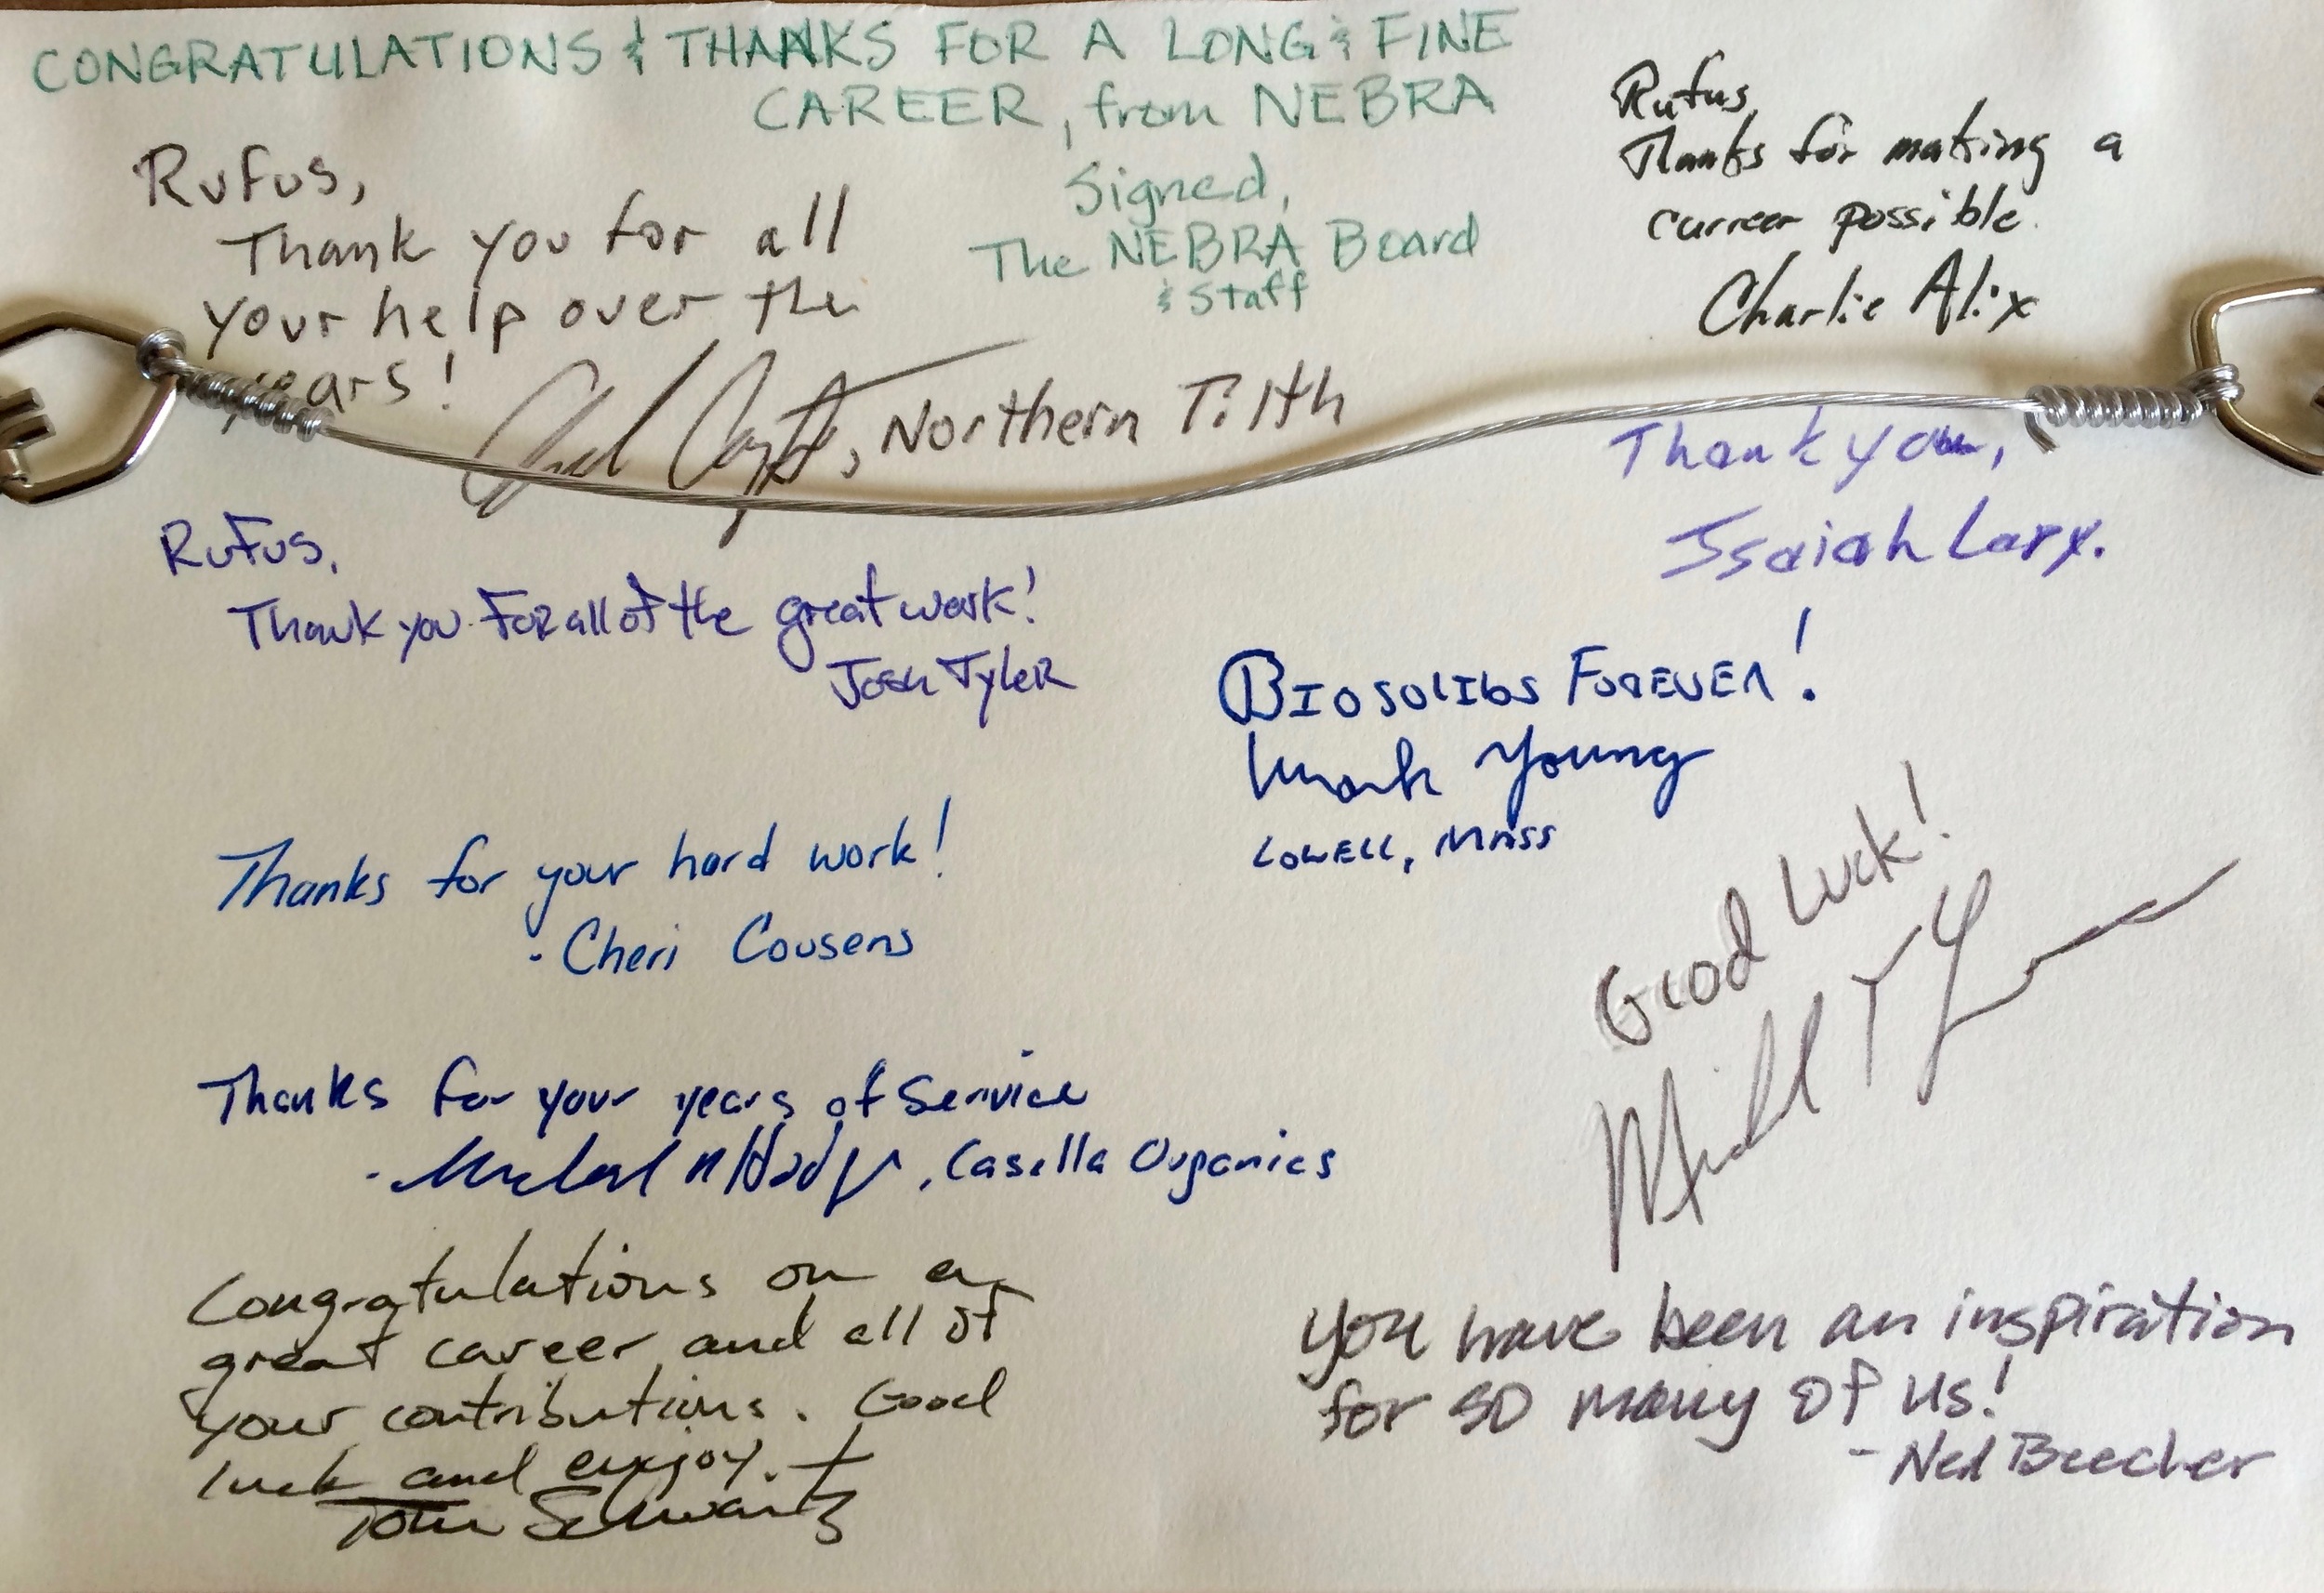 CONGRATULATIONS & THANKS FOR A LONG & FINE
CAREER, from NEBRA
Signed,
The NEBRA Board
& Staff
Rufus,
Thank you for all
your help over the
years!
, Northern Tilth
Rufus,
Thanks for making a
career possible.
Charlie Alix
Thank you,
Isaiah Lary.
Rufus,
Thank you For all of the great work!
Josh Tyler
BIOSOLIDS FOREVER!
Mark Young
LOWELL, MASS
Thanks for your hard work!
- Cheri Cousens
Good Luck!
Thanks for your years of Service
- Michael, Casella Organics
Congratulations on a
great career and all of
your contributions. Good
luck and enjoy.
Tom Schwartz
You have been an inspiration
for so many of us!
- Ned Beecher